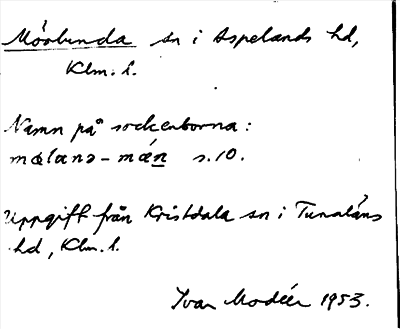 Mörlunda sn i Aspelands hd,
Klm. l.
Namn på sockenborna:
mælana-mæn s. 10.
Uppgift från Kristdala sn i Tunaläns
hd, Klm. l.
Ivar Modéer 1953.